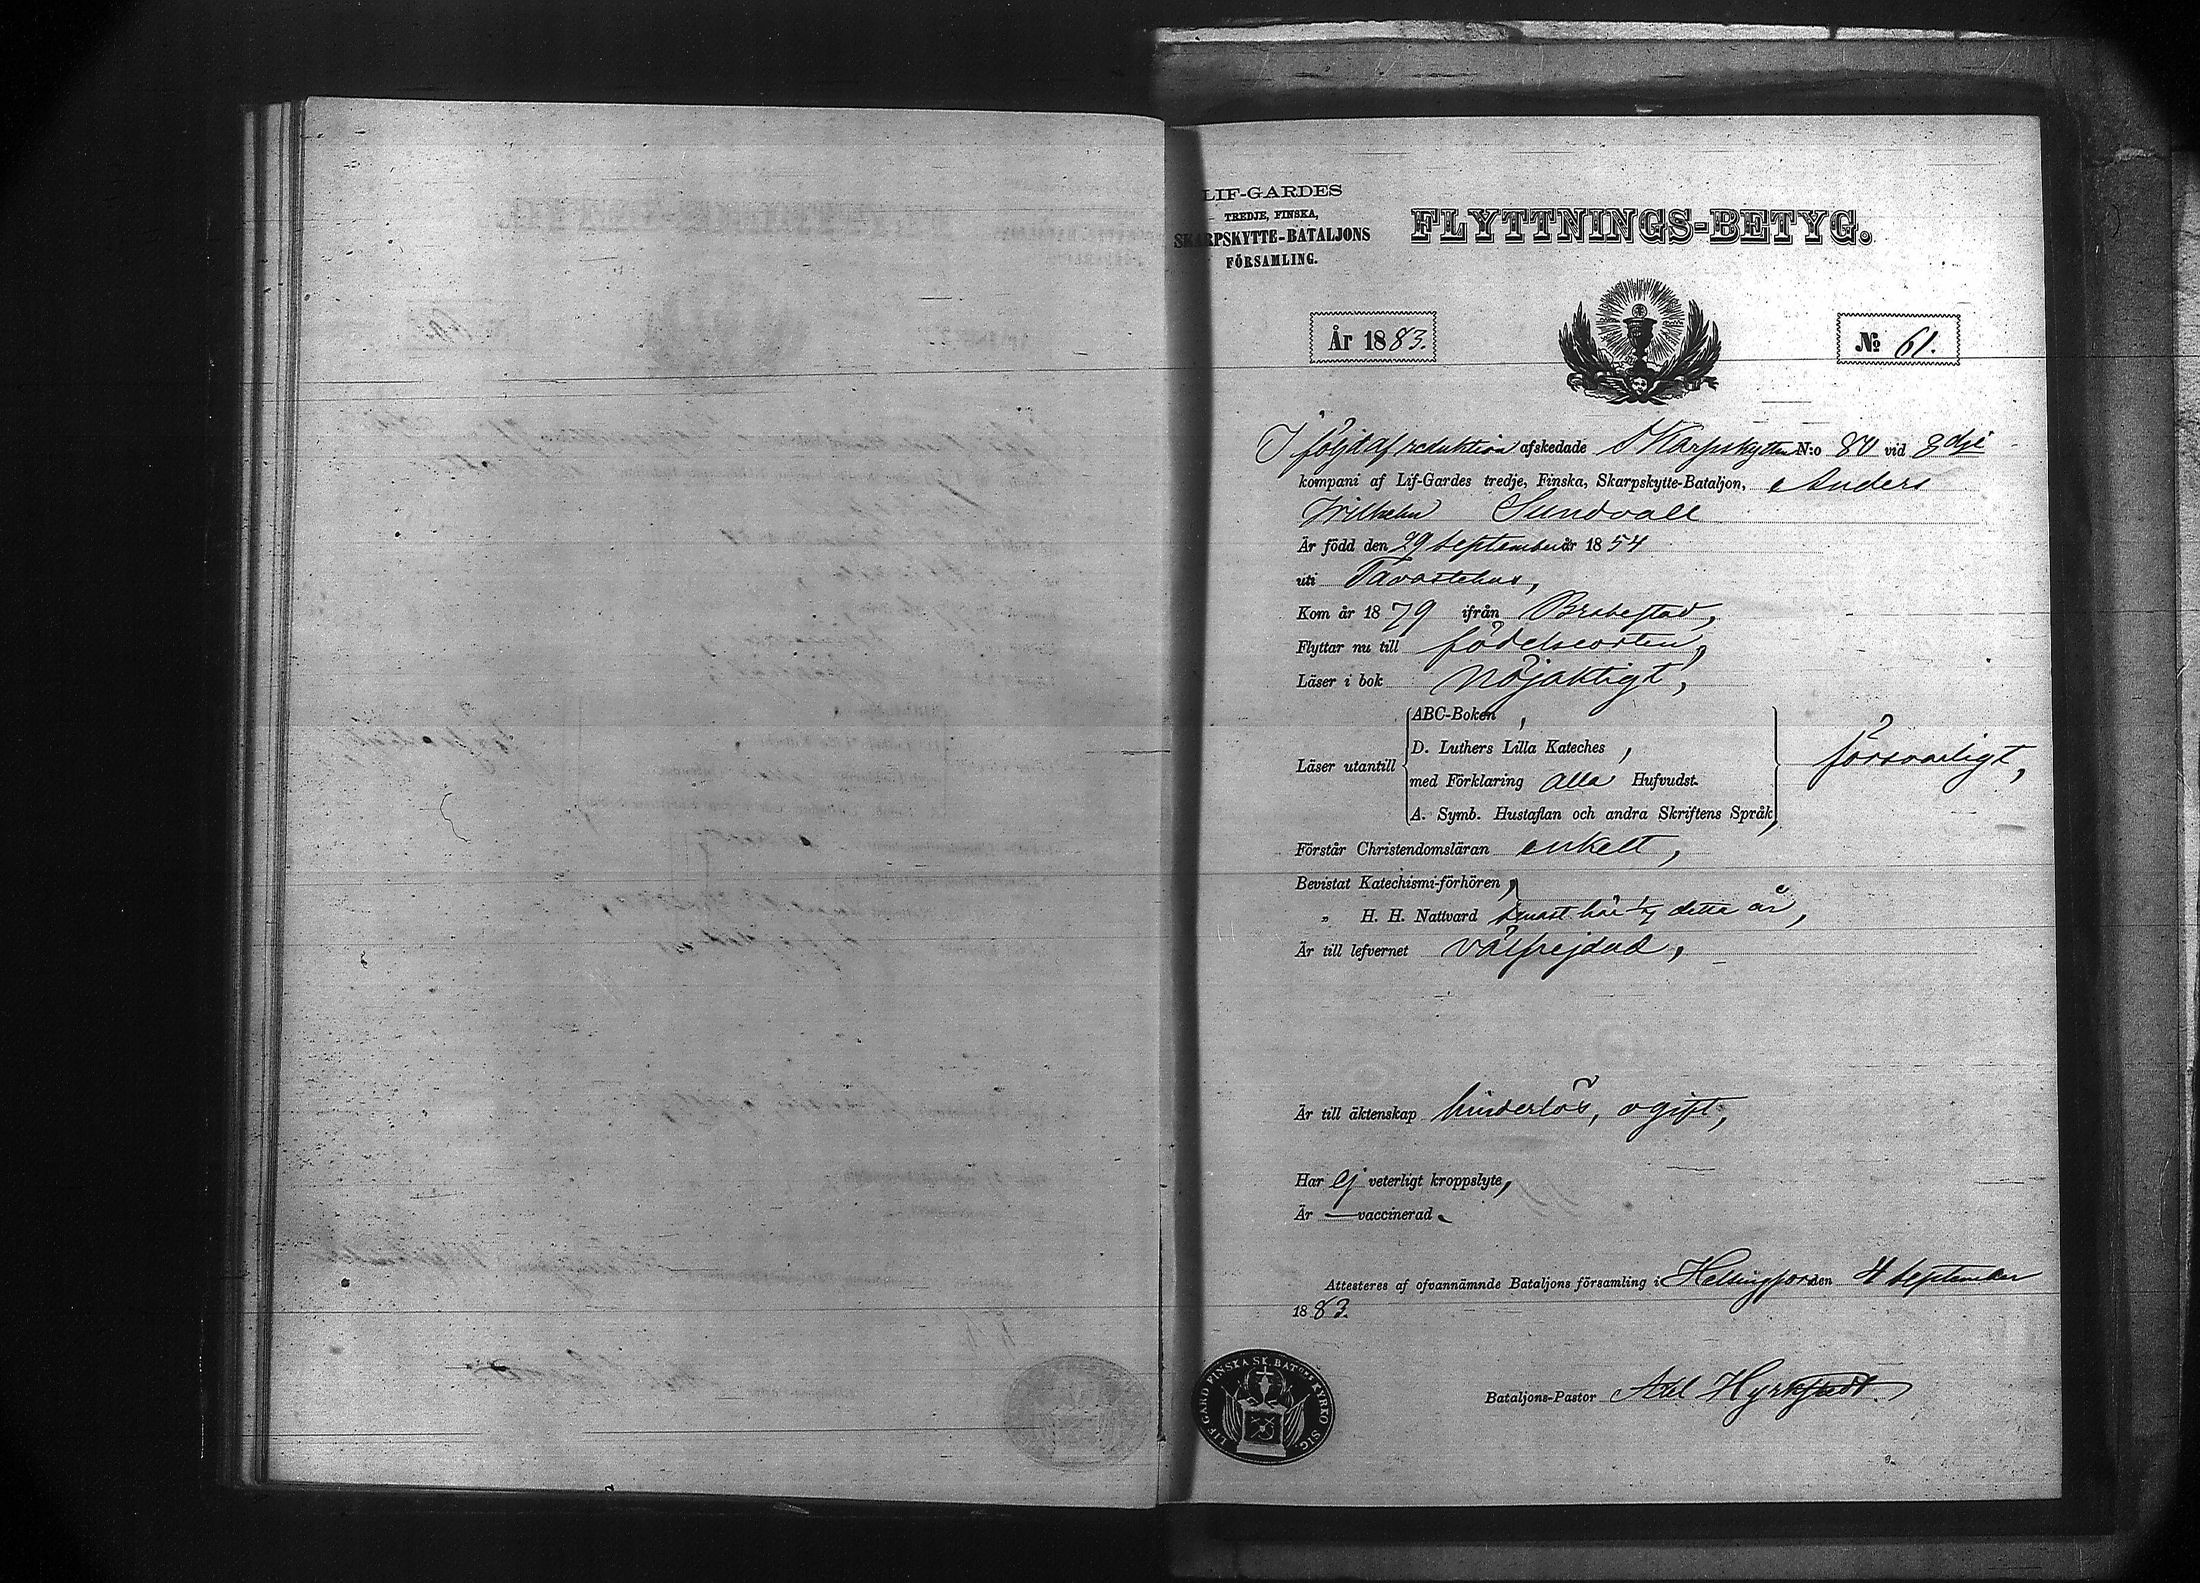 LIF-GARDES
TREDJE, FINSKA,
SKARPSKYTTE-BATALJONS
FÖRSAMLING.
FLYTTNINGS-BETYG.
År 1883.
No 61.
I följd af reduktion afskedade Skarpskytten N:o 80 vid 3dje
kompani af Lif-Gardes tredje, Finska, Skarpskytte-Bataljon, Anders
Wilhelm Sundvall
Är född den 29 September år 1854
uti Tavastehus,
Kom år 1879 ifrån Brahestad,
Flyttar nu till födelseorten,
Läser i bok nöjaktigt,
Läser utantill
ABC-Boken,
D. Luthers Lilla Kateches,
med Förklaring alla Hufvudst.
A. Symb. Hustaflan och andra Skriftens Språk,
försvarligt,
Förstår Christendomsläran enkelt,
Bevistat Katechismi-förhören,
„ H. H. Nattvard senast här detta år,
Är till lefvernet välfrejdad,
Är till äktenskap hinderlös, ogift,
Har ej veterligt kroppslyte,
Är — vaccinerad.
Attesteres af ofvannämnde Bataljons församling i Helsingfors den 4 September
1883.
Bataljons-Pastor Axel Hyrkstedt.
LIF GARD FINSKA SK. BATONS KYRKO SIG.